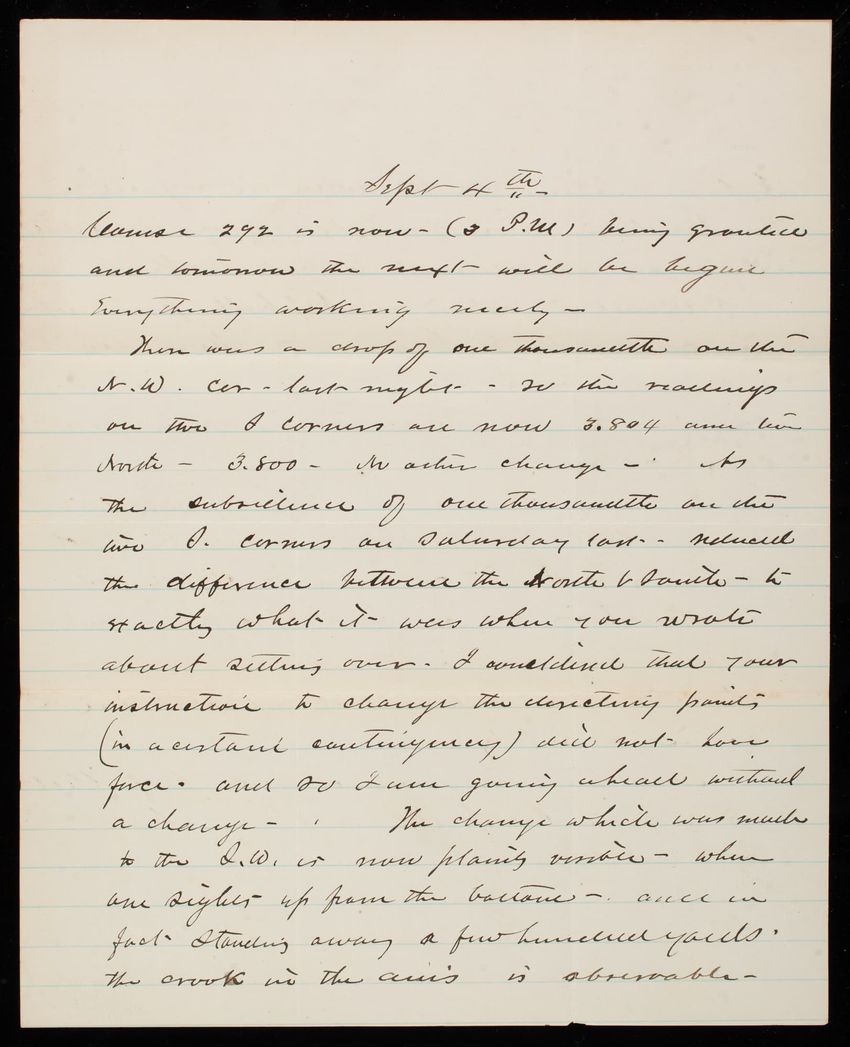 Sept 4th
Course 292 is now - (3 P.M) being grouted
and tomorrow the next will be begun
Everything working nicely -
There was a drop of one thousandth on the
N.W. cor - last night - so the readings
on two S corners are now 3.804 and two
North - 3.800 - No other change - As
the subsidence of one thousandth on the
two S. corners on Saturday last - reduced
the difference between the North & South - to
exactly what it was when you wrote
about setting over. I considered that your
instruction to change the directing points
(in a certain contingency) did not have
force. and so I am going ahead without
a change - The change which was made
to the S.W. is now plainly visible - when
one sights up from the bottom -. and in
fact standing away a few hundred yards.
the crook in the axis is observable -